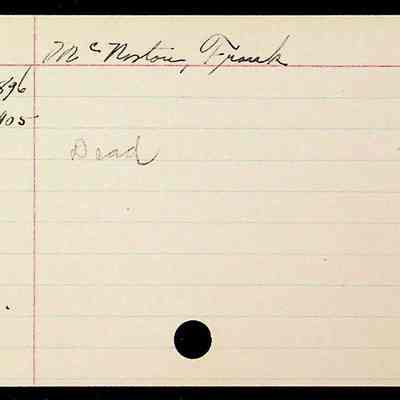 McNorton, Frank
896
905
Dead